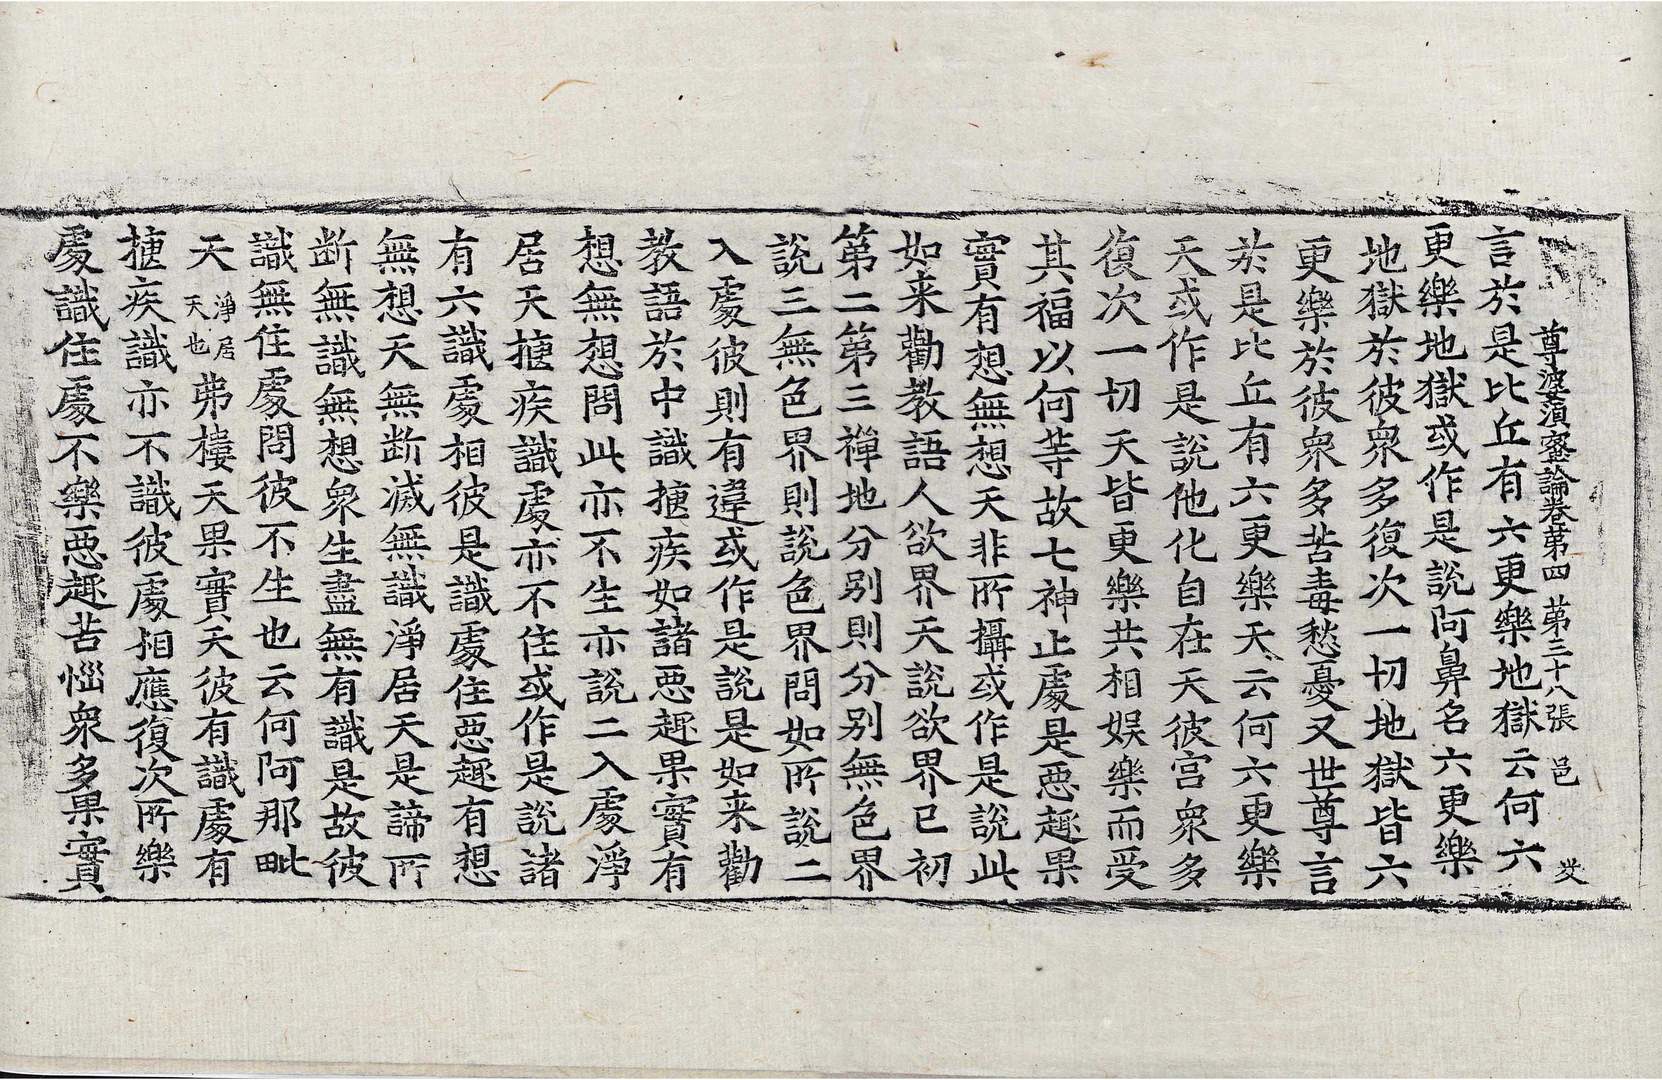 尊婆湏蜜論卷苐四 苐三十八張 邑
言於是比丘有六更樂地獄云何六
更樂地獄或作是説阿鼻名六更樂
地獄於彼衆多復次一切地獄皆六
更樂於彼衆多苦毒愁憂又世尊言
於是比丘有六更樂天云何六更樂
天或作是説他化自在天彼宫衆多
復次一切天皆更樂共相娱樂而受
其福以何等故七神止處是惡趣果
實有想無想天非所攝或作是説此
如来勸教語人欲界天説欲界已初
第二第三禪地分别則分别無色界
説三無色界則説色界問如所説二
入處彼則有違或作是説是如来勸
教語於中識㨔疾如諸惡趣果實有
想無想問此亦不生亦説二入處淨
居天㨔疾識處亦不住或作是説諸
有六識處相彼是識處住惡趣有想
無想天無断滅無識淨居天是諦所
断無識無想衆生盡無有識是故彼
識無住處問彼不生也云何阿那毗
天淨居天也弗樓天果實天彼有識處有
㨔疾識亦不識彼處相應復次所樂
處識住處不樂惡趣苦惱衆多果實